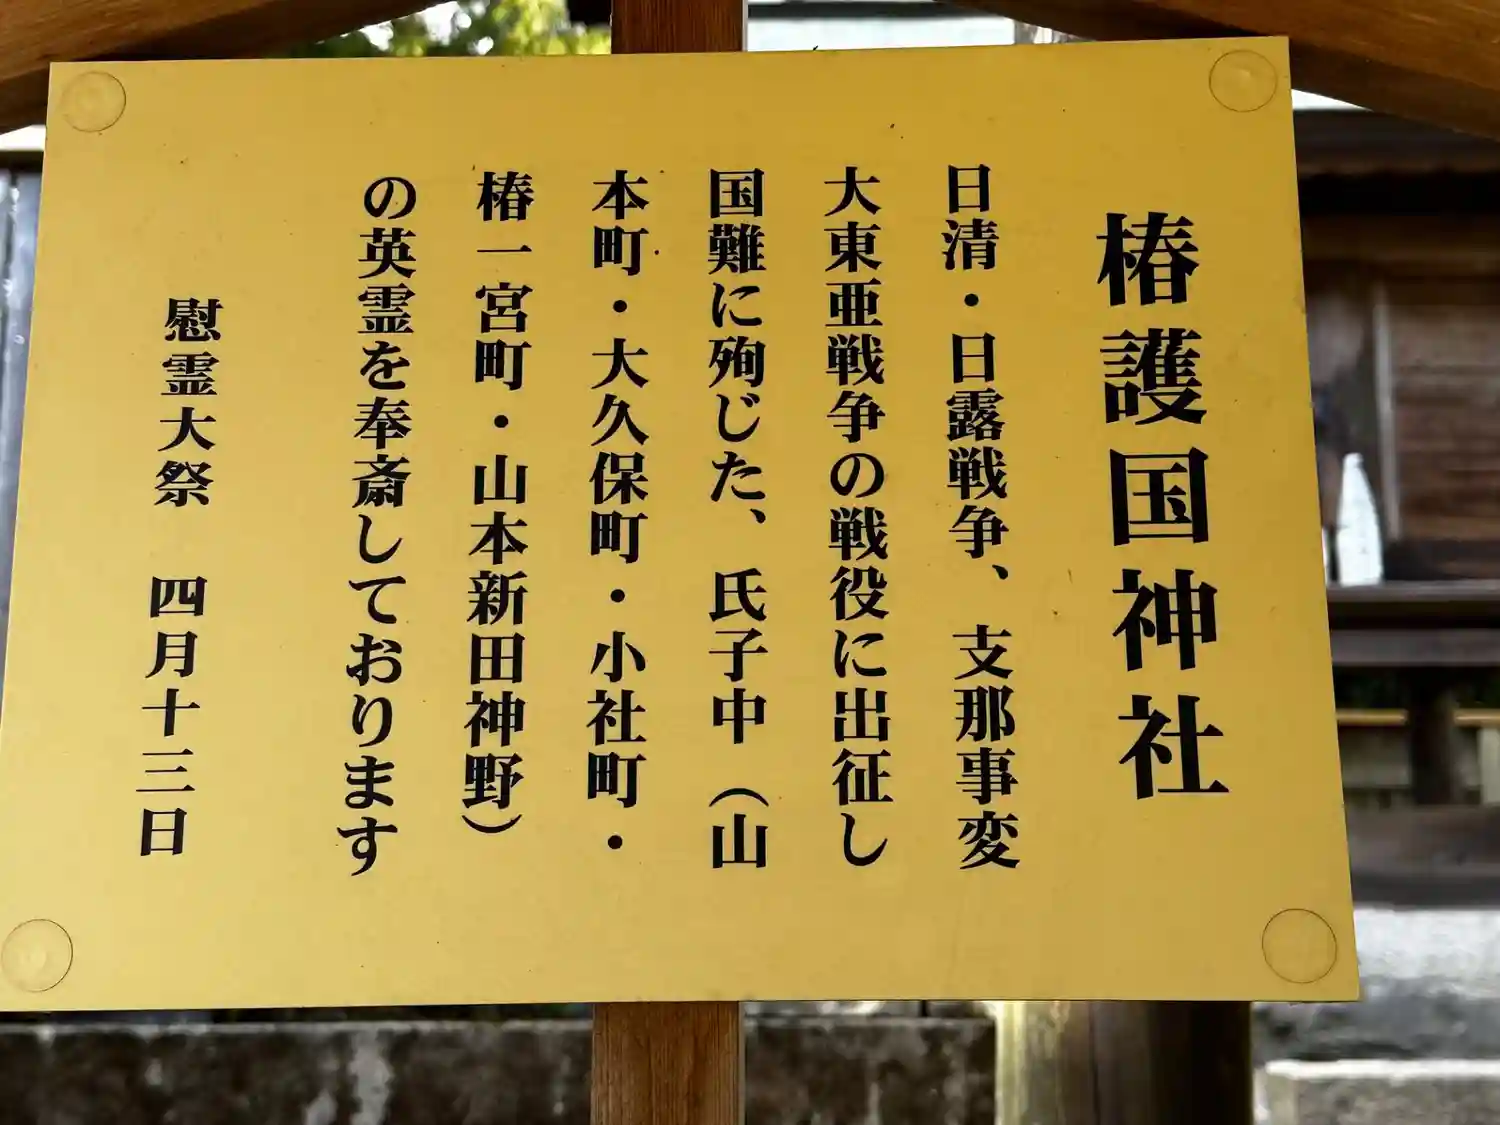 椿護国神社
日清・日露戦争、支那事変
大東亜戦争の戦役に出征し
国難に殉じた、氏子中（山
本町・大久保町・小社町・
椿一宮町・山本新田神野）
の英霊を奉斎しております
慰霊大祭　四月十三日